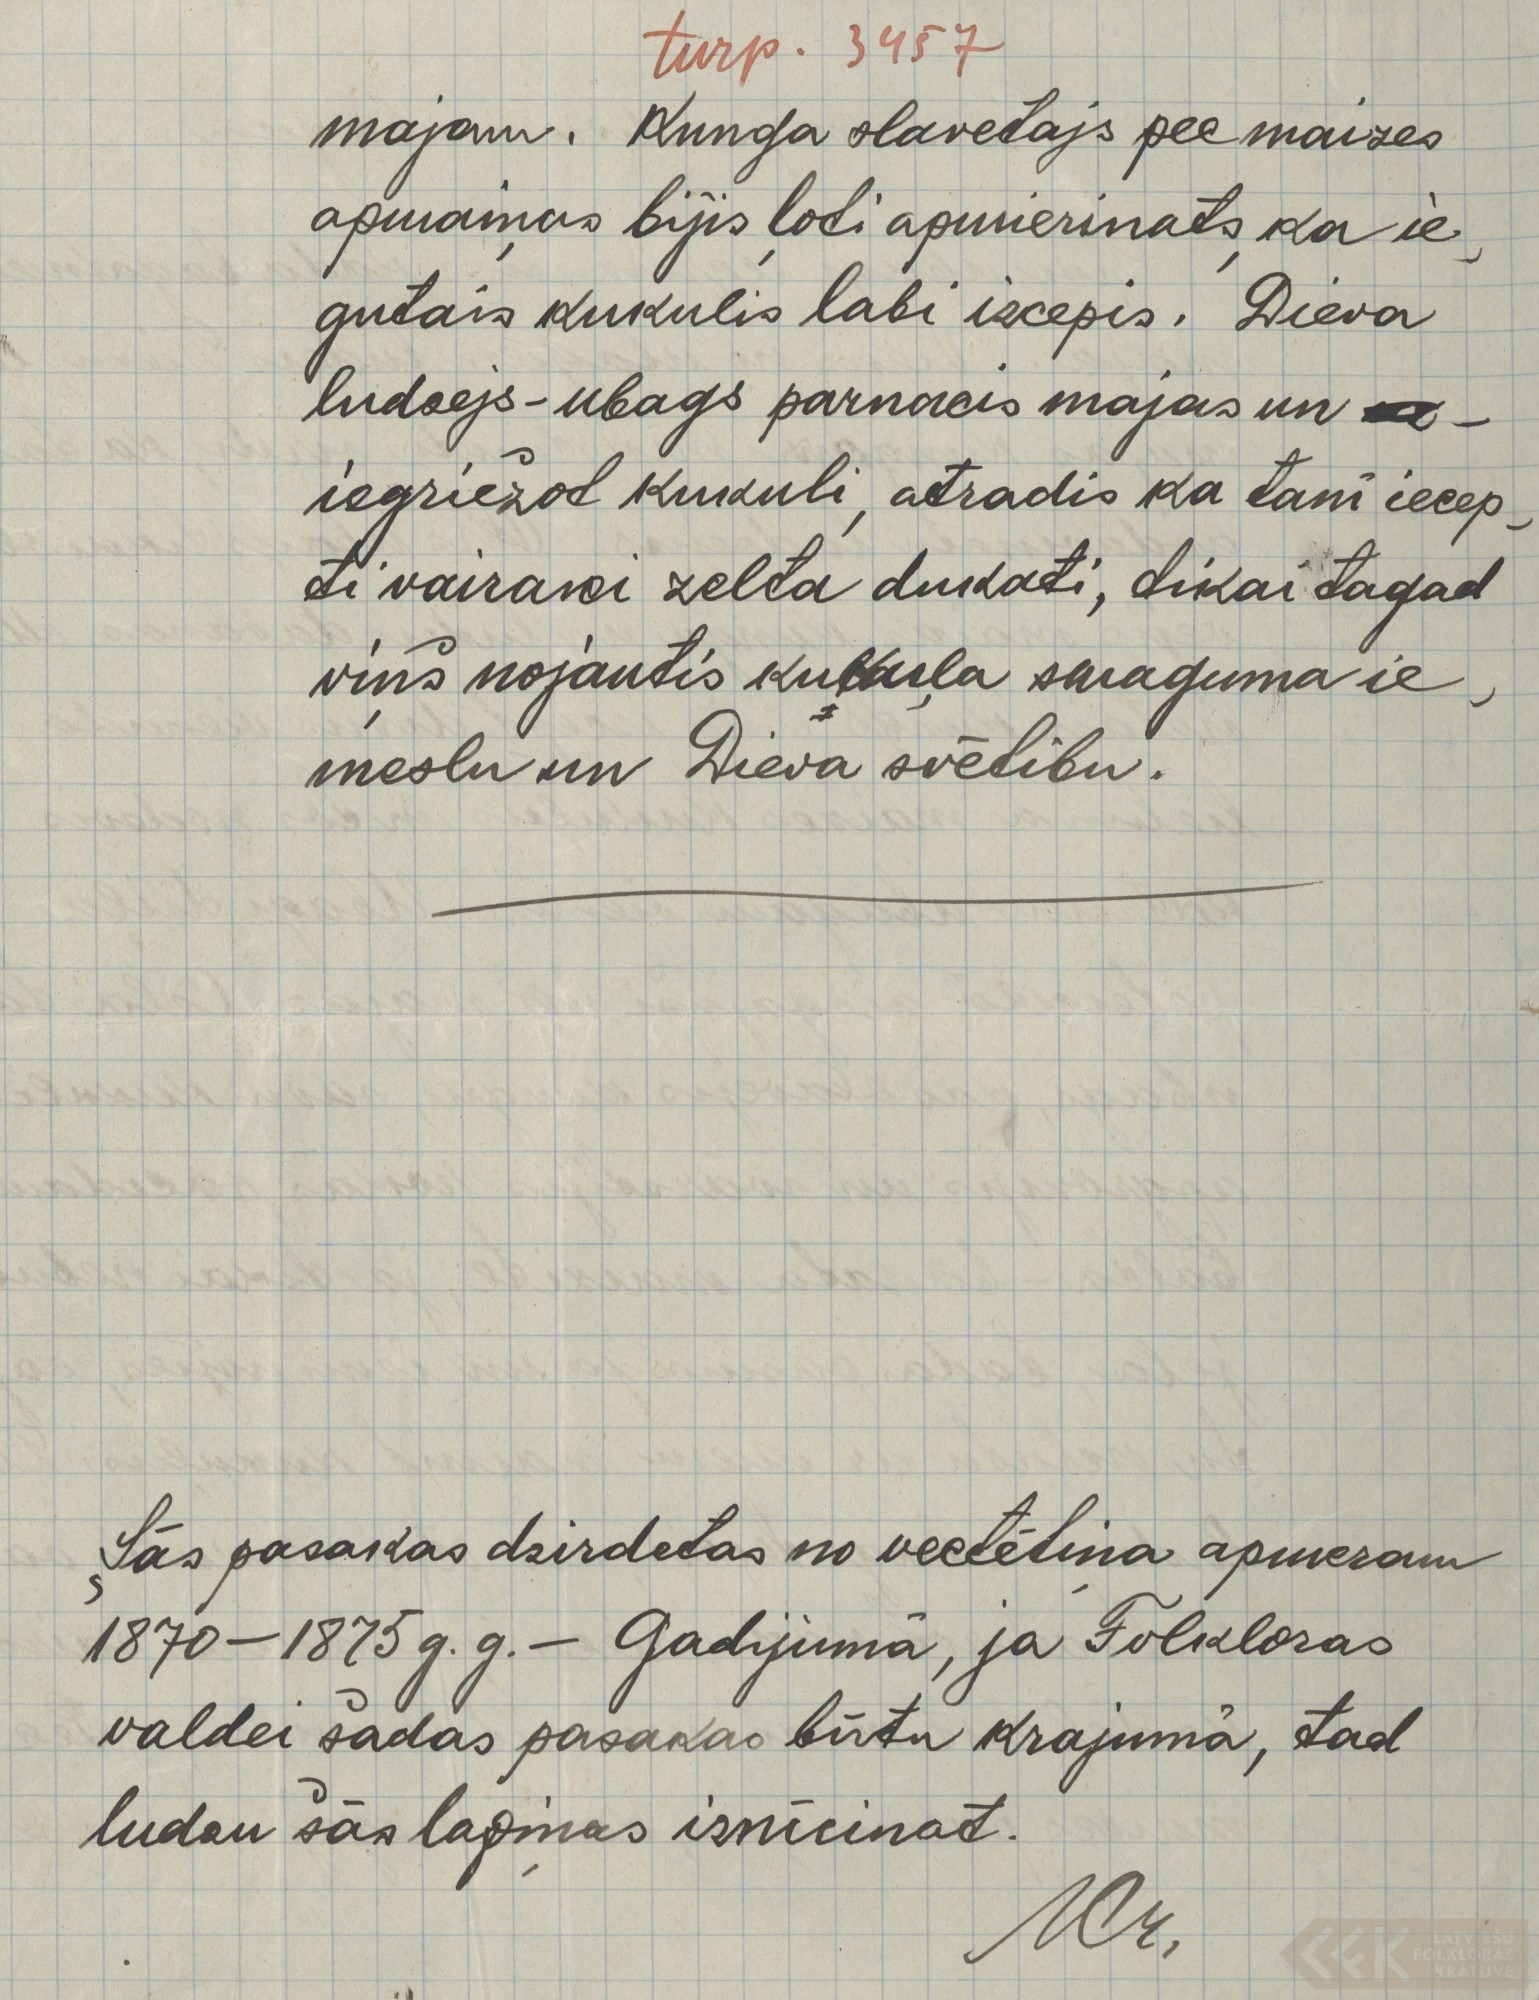 turp. 3457
majam. Kunga slavetajs pec maizes
apmaiņas bijis ļoti apmierinats, ka ie-
gutais kukulis labi izcepis. Dieva
ludzejs-ubags parnacis majas un -
iegriežot kukuli, atradis ka tanī iecep-
ti vairaki zelta dukati, tikai tagad
viņš nojautis kukuļa smaguma ie-
meslu un Dieva svētību.
Šās pasakas dzirdetas no vectētiņa apmeram
1870–1875 g. g. – Gadijumā, ja Folkloras
valdei šadas pasakas būtu krajumā, tad
ludzu šās lapiņas iznīcinat.
LATVIEŠU
FOLKLORAS
KRĀTUVE